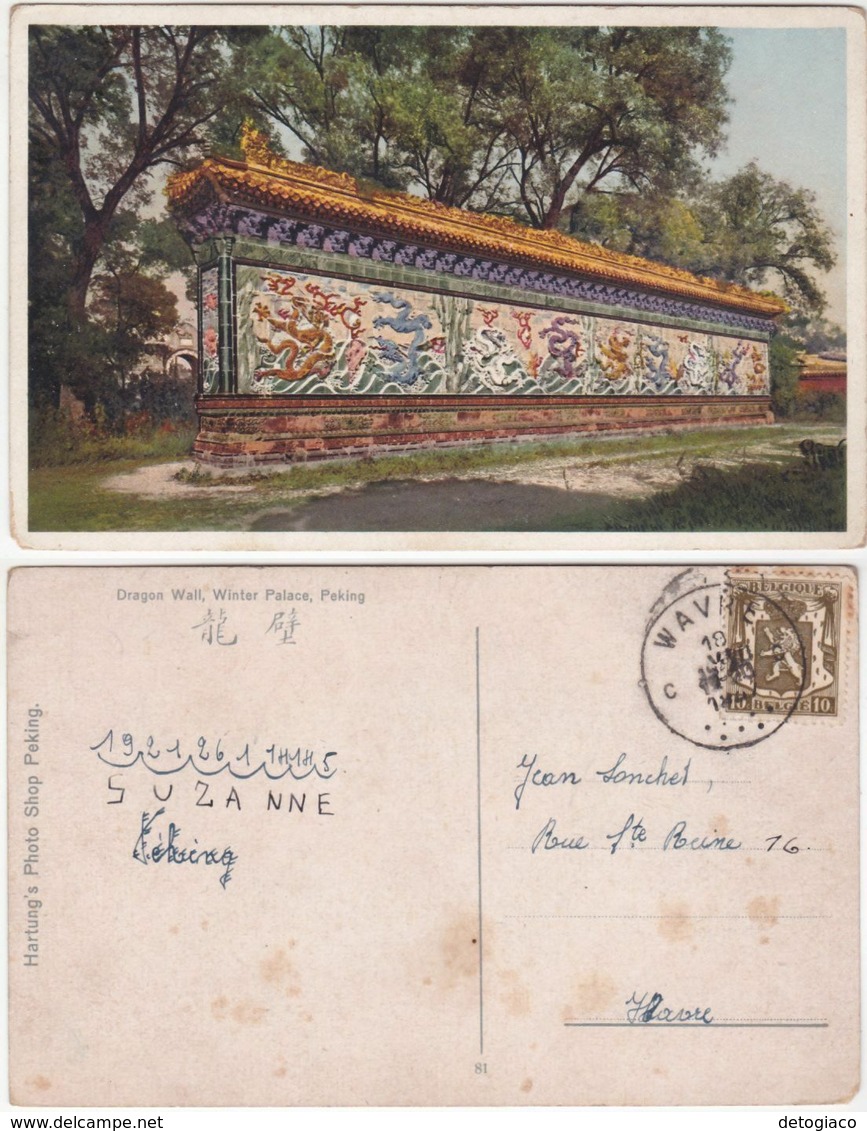 Dragon Wall, Winter Palace, Peking
龍 壁
Hartung's Photo Shop Peking.
19 21 26 1 14 14 5
S U Z A N N E
Peking
WAVRE
18
C C
BELGIQUE
10 BELGIË 10
Jean Sonchet,
Rue Ste Reine 16.
Wavre
81
detogiaco